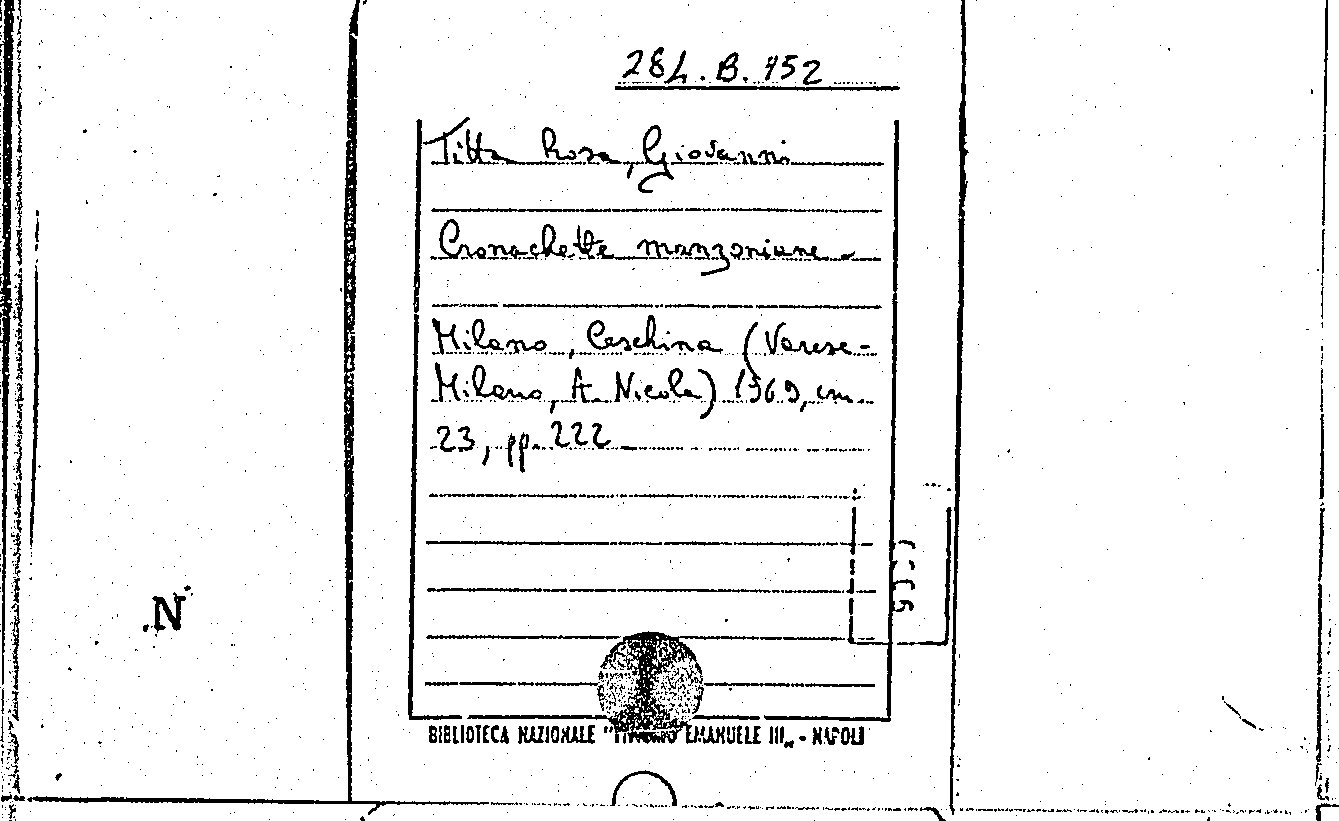 28L.B.152
Titta Rosa, Giovanni
Cronachette manzoniane.
Milano, Ceschina (Varese-
Milano, A. Nicola) 1969, cm.
23, pp. 222
N
BIBLIOTECA NAZIONALE "VITTORIO EMANUELE III„ - NAPOLI